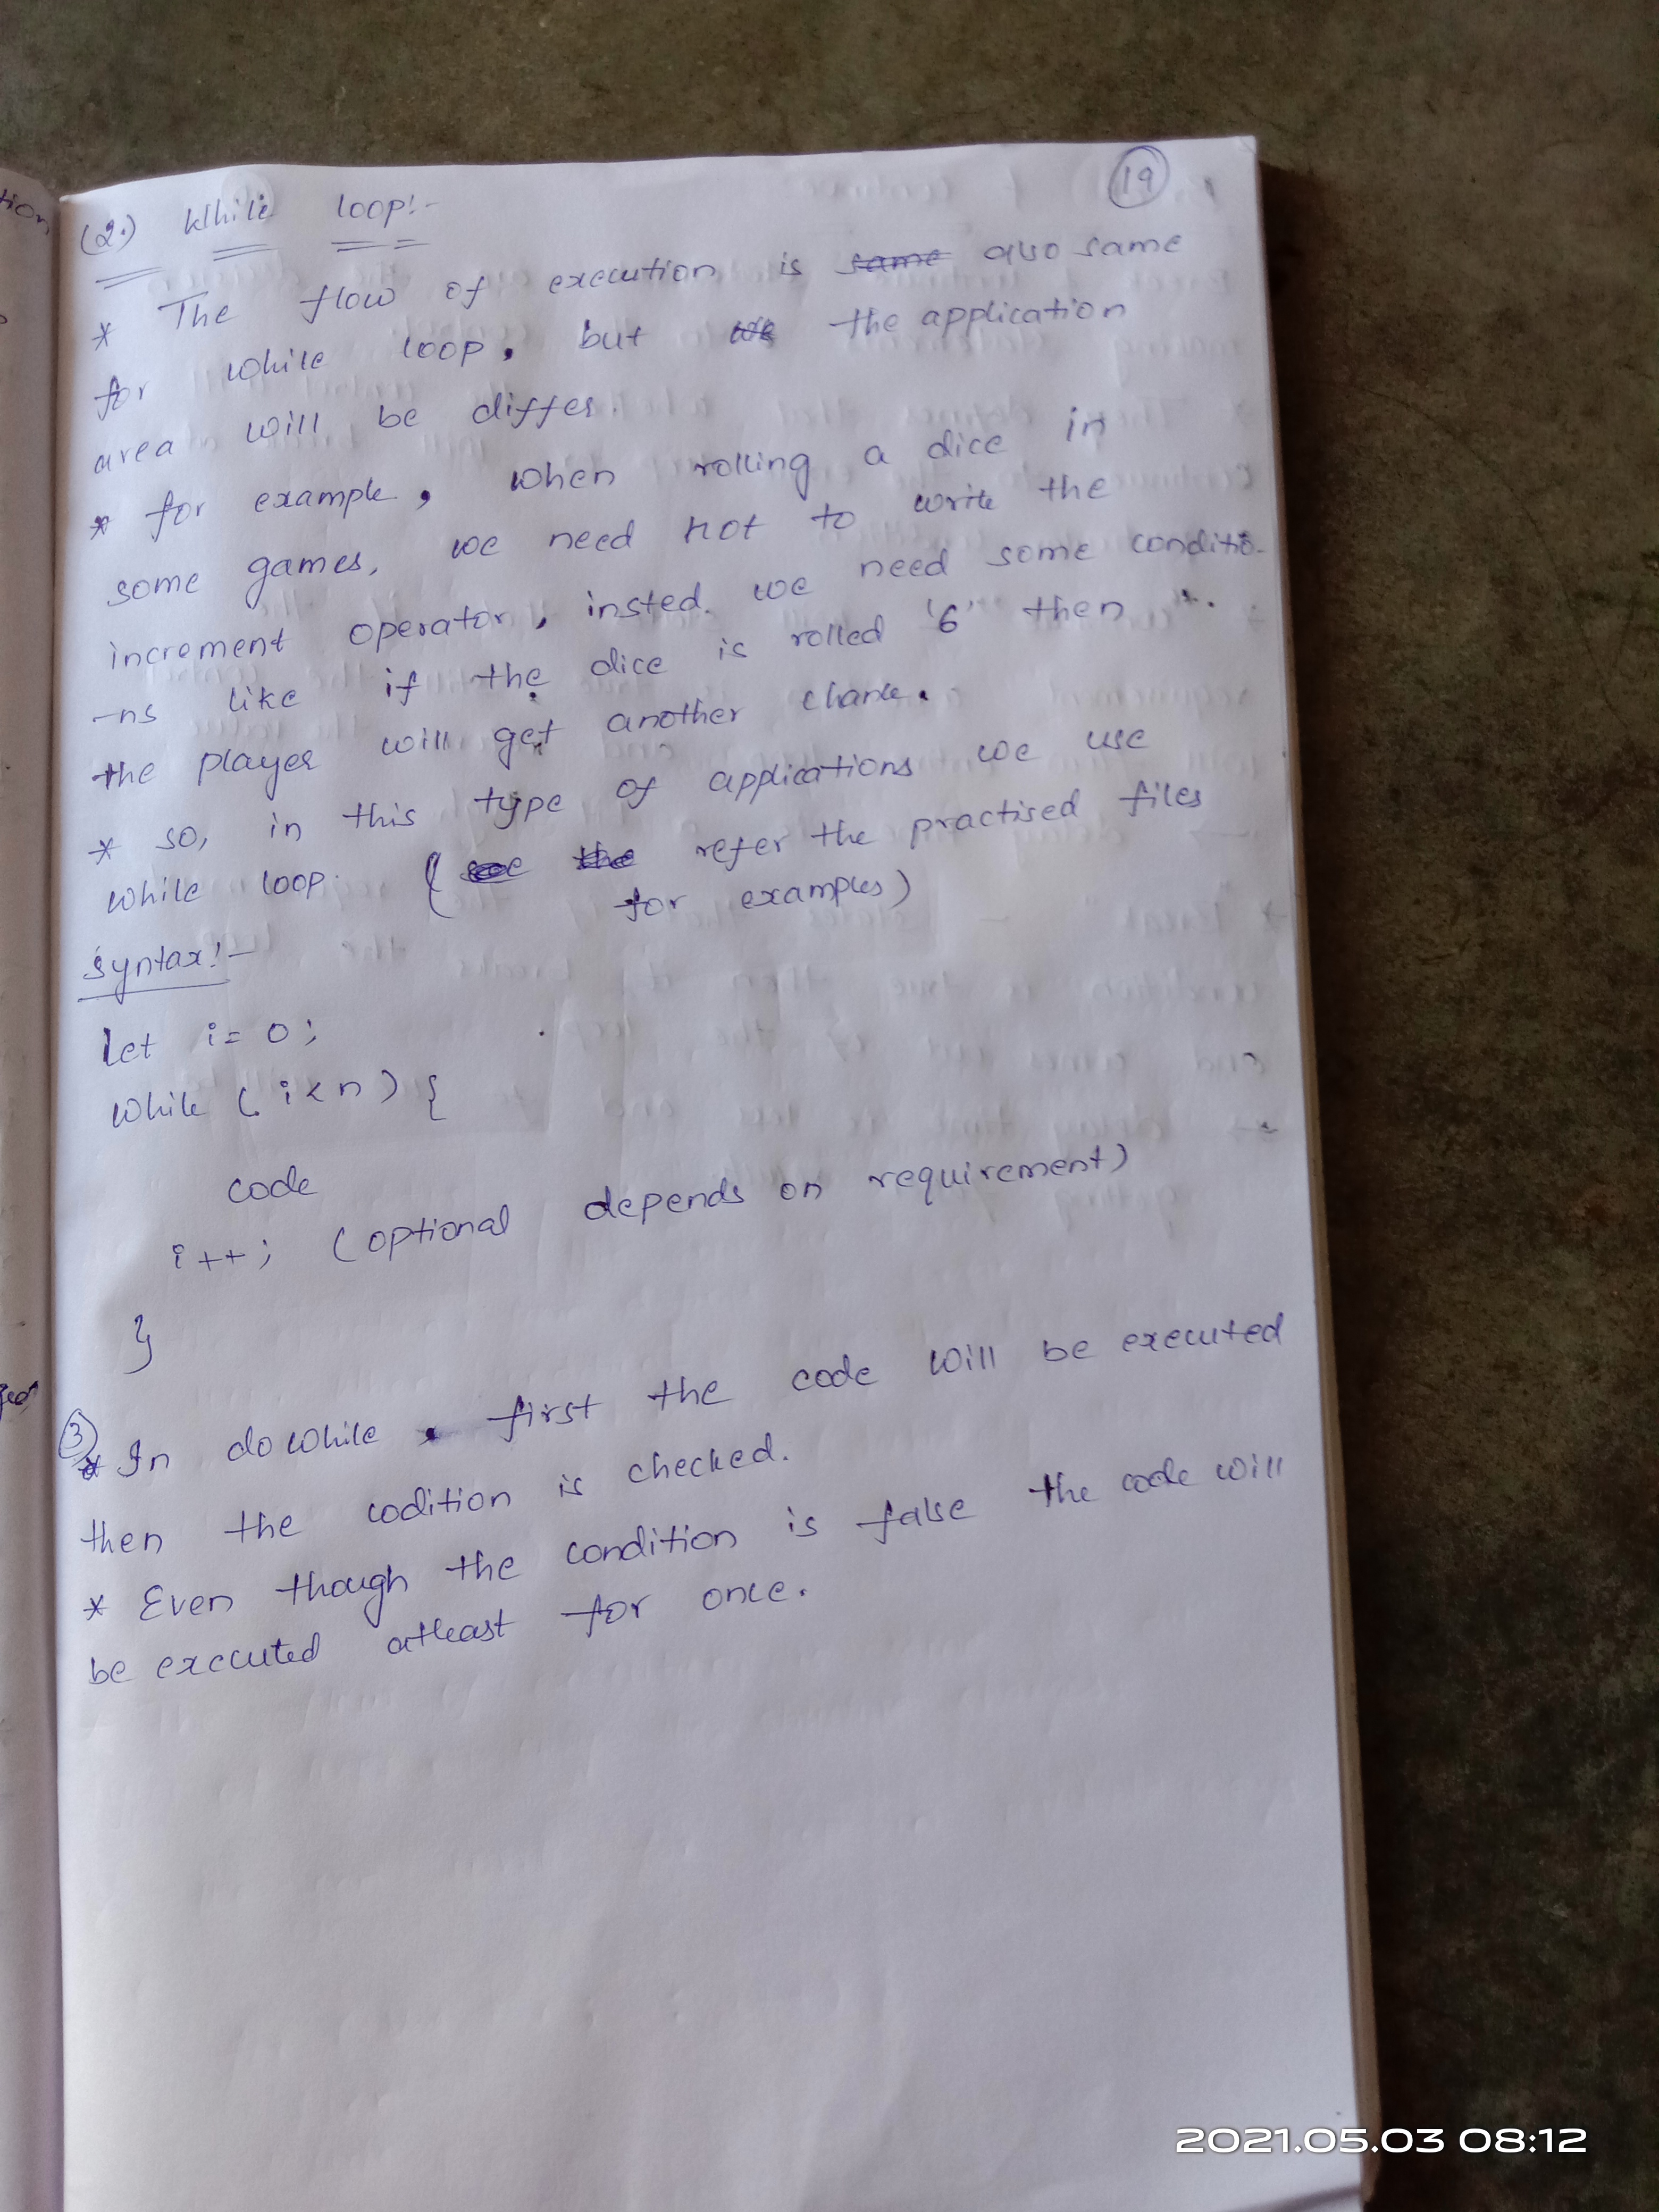 19
(2.) While loop:-
* The flow of execution is same also same
for while loop, but the application
area will be differ.
* for example, when rolling a dice in
some games, we need not to write the
increment operator, insted. we need some conditio-
-ns like if the dice is rolled '6' then
the player will get another chance.
* so, in this type of applications we use
while loop. ( see the refer the practised files
for examples)
syntax:-
Let i= 0;
while (i<n) {
code
i++; (optional depends on requirement)
}
3
* In dowhile, first the code will be executed
then the codition is checked.
* Even though the condition is false the code will
be executed atleast for once.
tion
2021.05.03 08:12